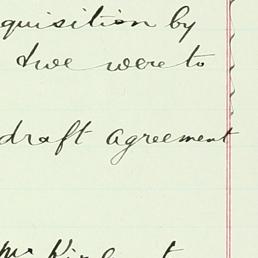 quisition by
& we were to
draft agreement
Mr